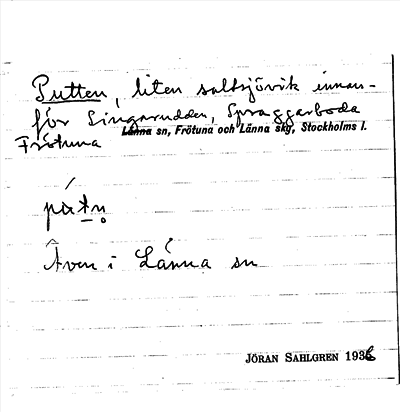 Putten, liten saltsjövik innan-
för Singarudden, Spraggarboda
Frötuna Länna sn, Frötuna och Länna skg, Stockholms l.
Även i Länna sn
JÖRAN SAHLGREN 1936